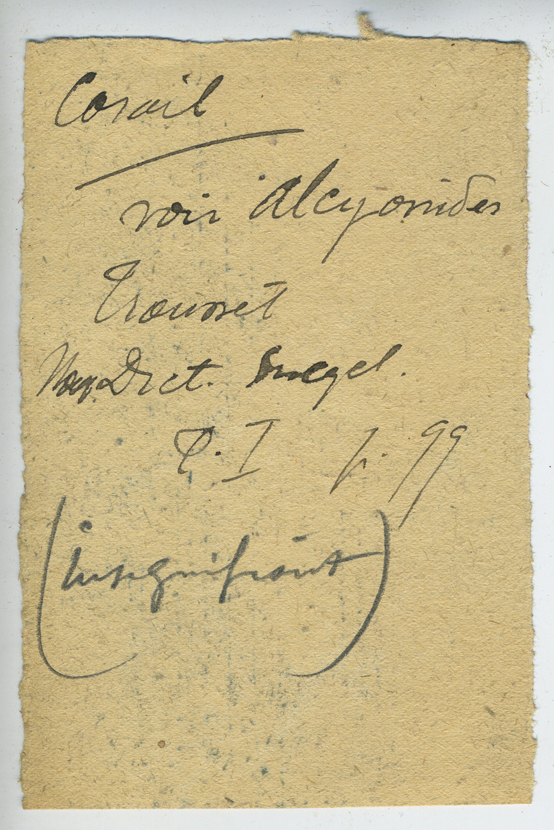 Corail
voir Alcyonides
Trousset
Nouv. Dict. Encycl.
T. I p. 99
(insignifiant)